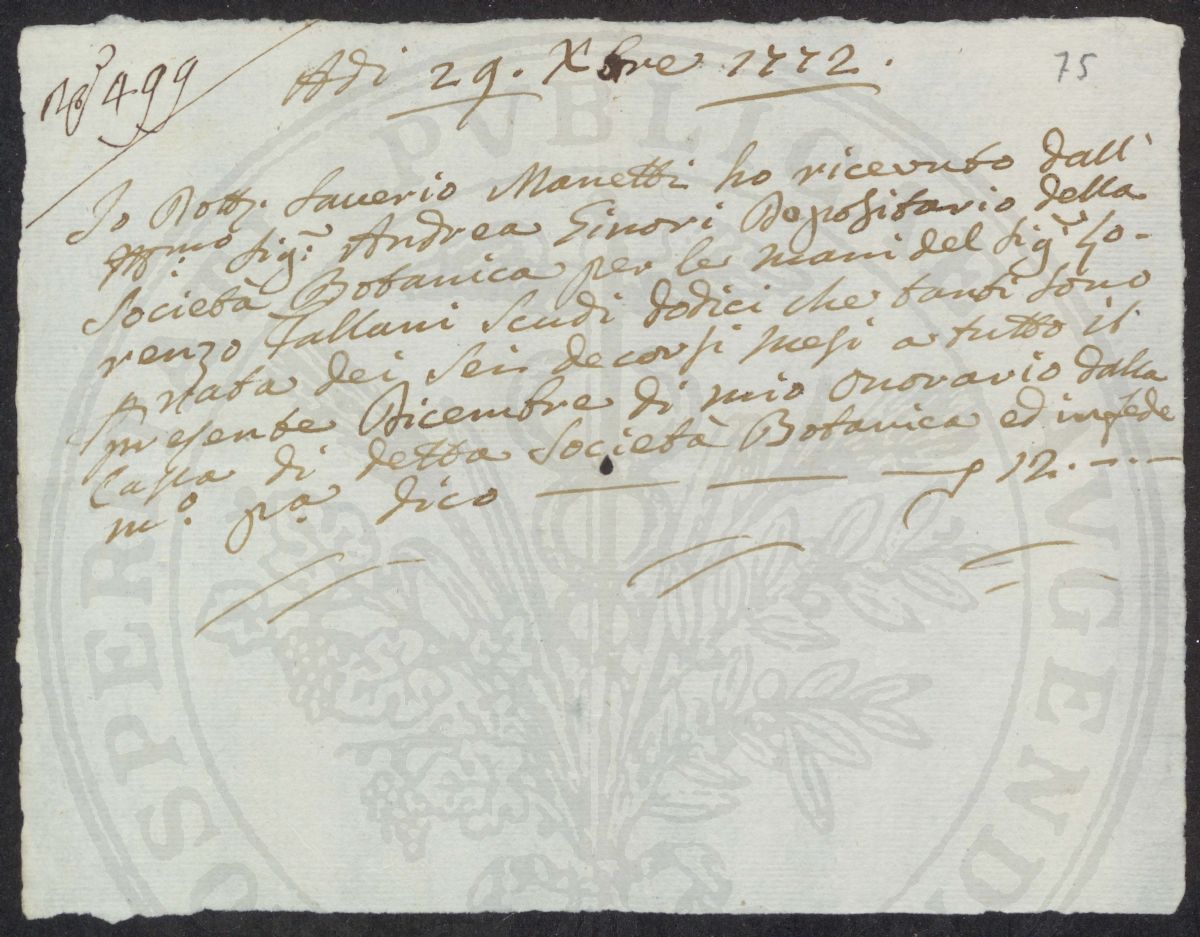 N.º 499
Adi 29. Xbre 1772.
75
Io Dott.r Saverio Manetti ho ricevuto dall'
Ill.mo Sig.r Andrea Ginori Depositario della
Società Botanica per le mani del Sig.r Lo-
renzo Tallani Scudi dodici che tanti sono
p rata dei Sei decorsi mesi a tutto il
presente Dicembre di mio onorario dalla
Cassa di detta Società Botanica ed in fede
m.o p.a dico — — — 12. — . —
PROSPERITATI PVBLICAE AVGENDAE